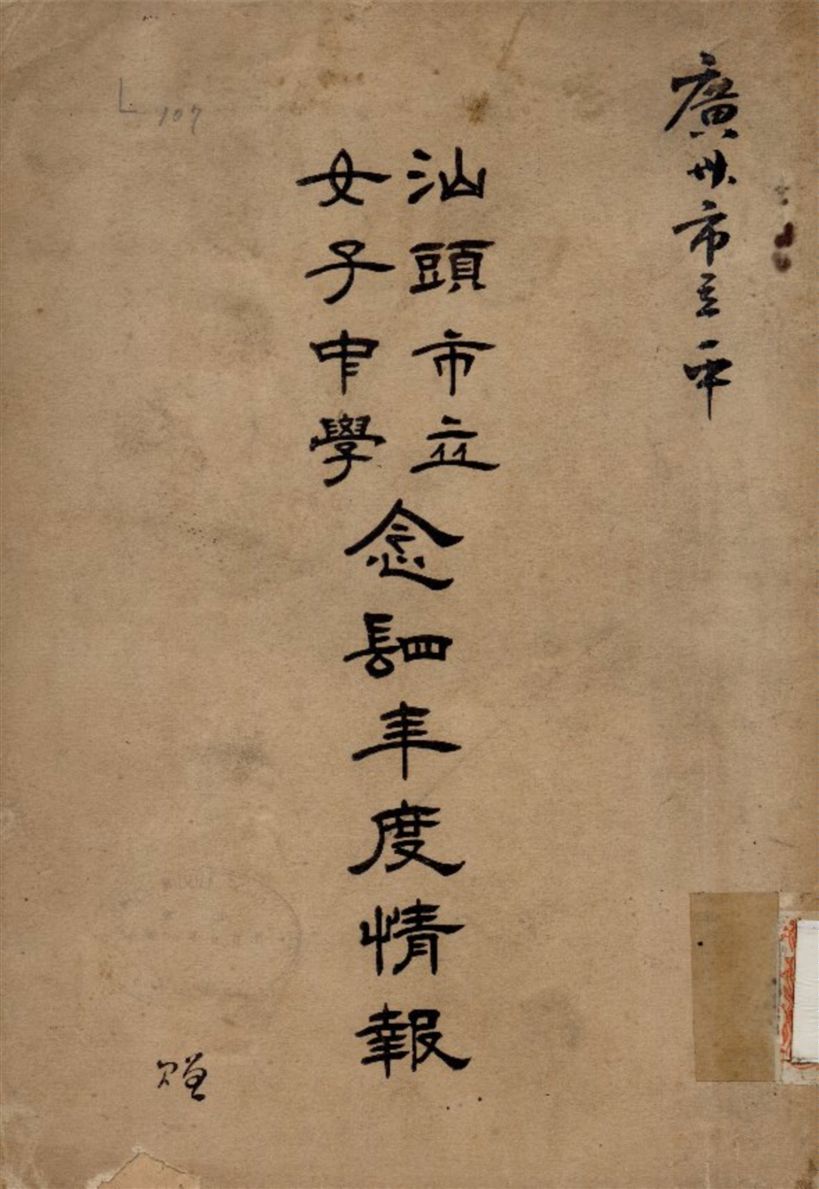 廣州市立一中
汕頭市立
女子中學
念肆年度情報
L 107
贈